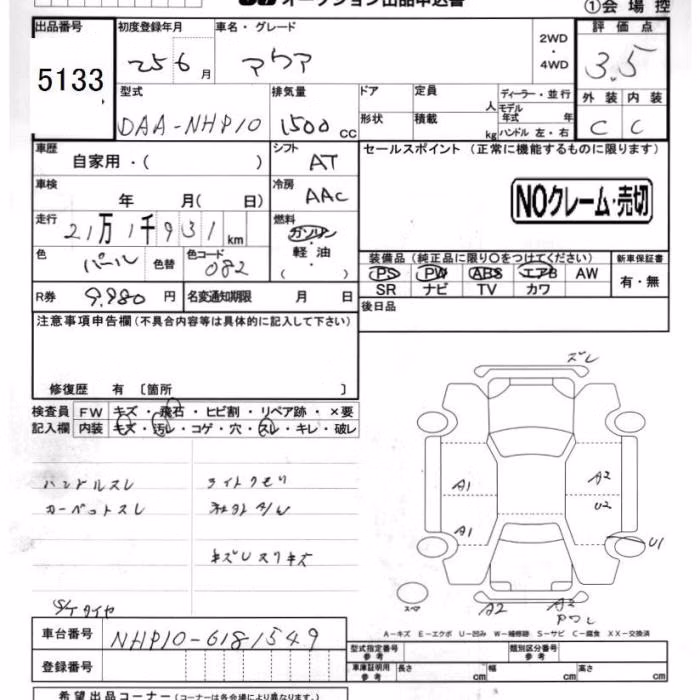 オークション出品申込書
①会場控
出品番号
5133
初度登録年月
25 6月
車名・グレード
アクア
2WD
・
4WD
評価点
3.5
型式
DAA-NHP10
排気量
1500 cc
ドア
定員
人
ディーラー・並行
モデル
年式 年
形状
積載
kg
ハンドル 左・右
外装 内装
C C
車歴
自家用・( )
シフト
AT
セールスポイント (正常に機能するものに限ります)
車検
年 月( 日)
冷房
AAC
NOクレーム・売切
走行
21万1千931km
燃料
ガソリン
軽油
( )
色
パール
色替
色コード
082
装備品 (純正品に限り○をつけてください)
新車保証書
PS PW ABS エアB AW
SR ナビ TV カワ
有・無
R券
9,980円
名変通知期限 月 日
後日品
注意事項申告欄 (不具合内容等は具体的に記入して下さい)
修復歴 有 〔箇所 〕
検査員
記入欄
FW キズ・飛石・ヒビ割・リペア跡・×要
内装 キズ・汚レ・コゲ・穴・スレ・キレ・破レ
ハンドルスレ
カーペットスレ
ライトクモリ
キズレスリキズ
S/Tタイヤ
ズレ
A1
A2
U2
A1
U1
スペア
A2
A2
A-キズ E-エクボ U-凹み W-補修跡 S-サビ C-腐食 XX-交換済
車台番号
NHP10-6181549
登録番号
型式指定番号
参考
類別区分番号
参考
車庫証明用
参考
長さ cm
幅 cm
高さ cm
希望出品コーナー (コーナーは各会場により異なります)